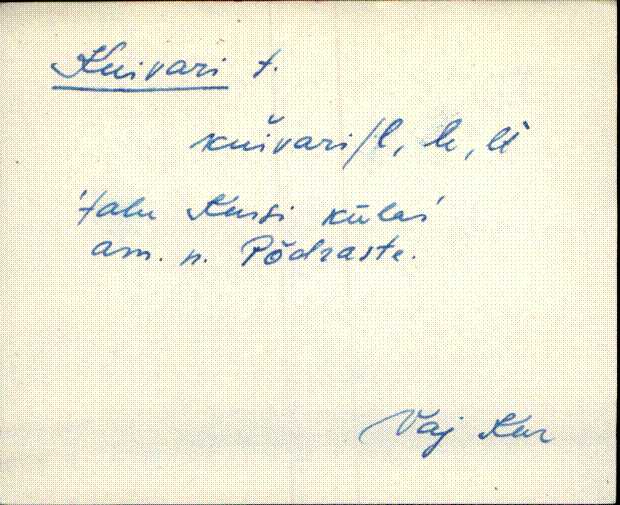 Kuivari t.
kuivari/l, le, lt
'talu Kursi külas'
am. n. Põdraste.
Vaj Kur